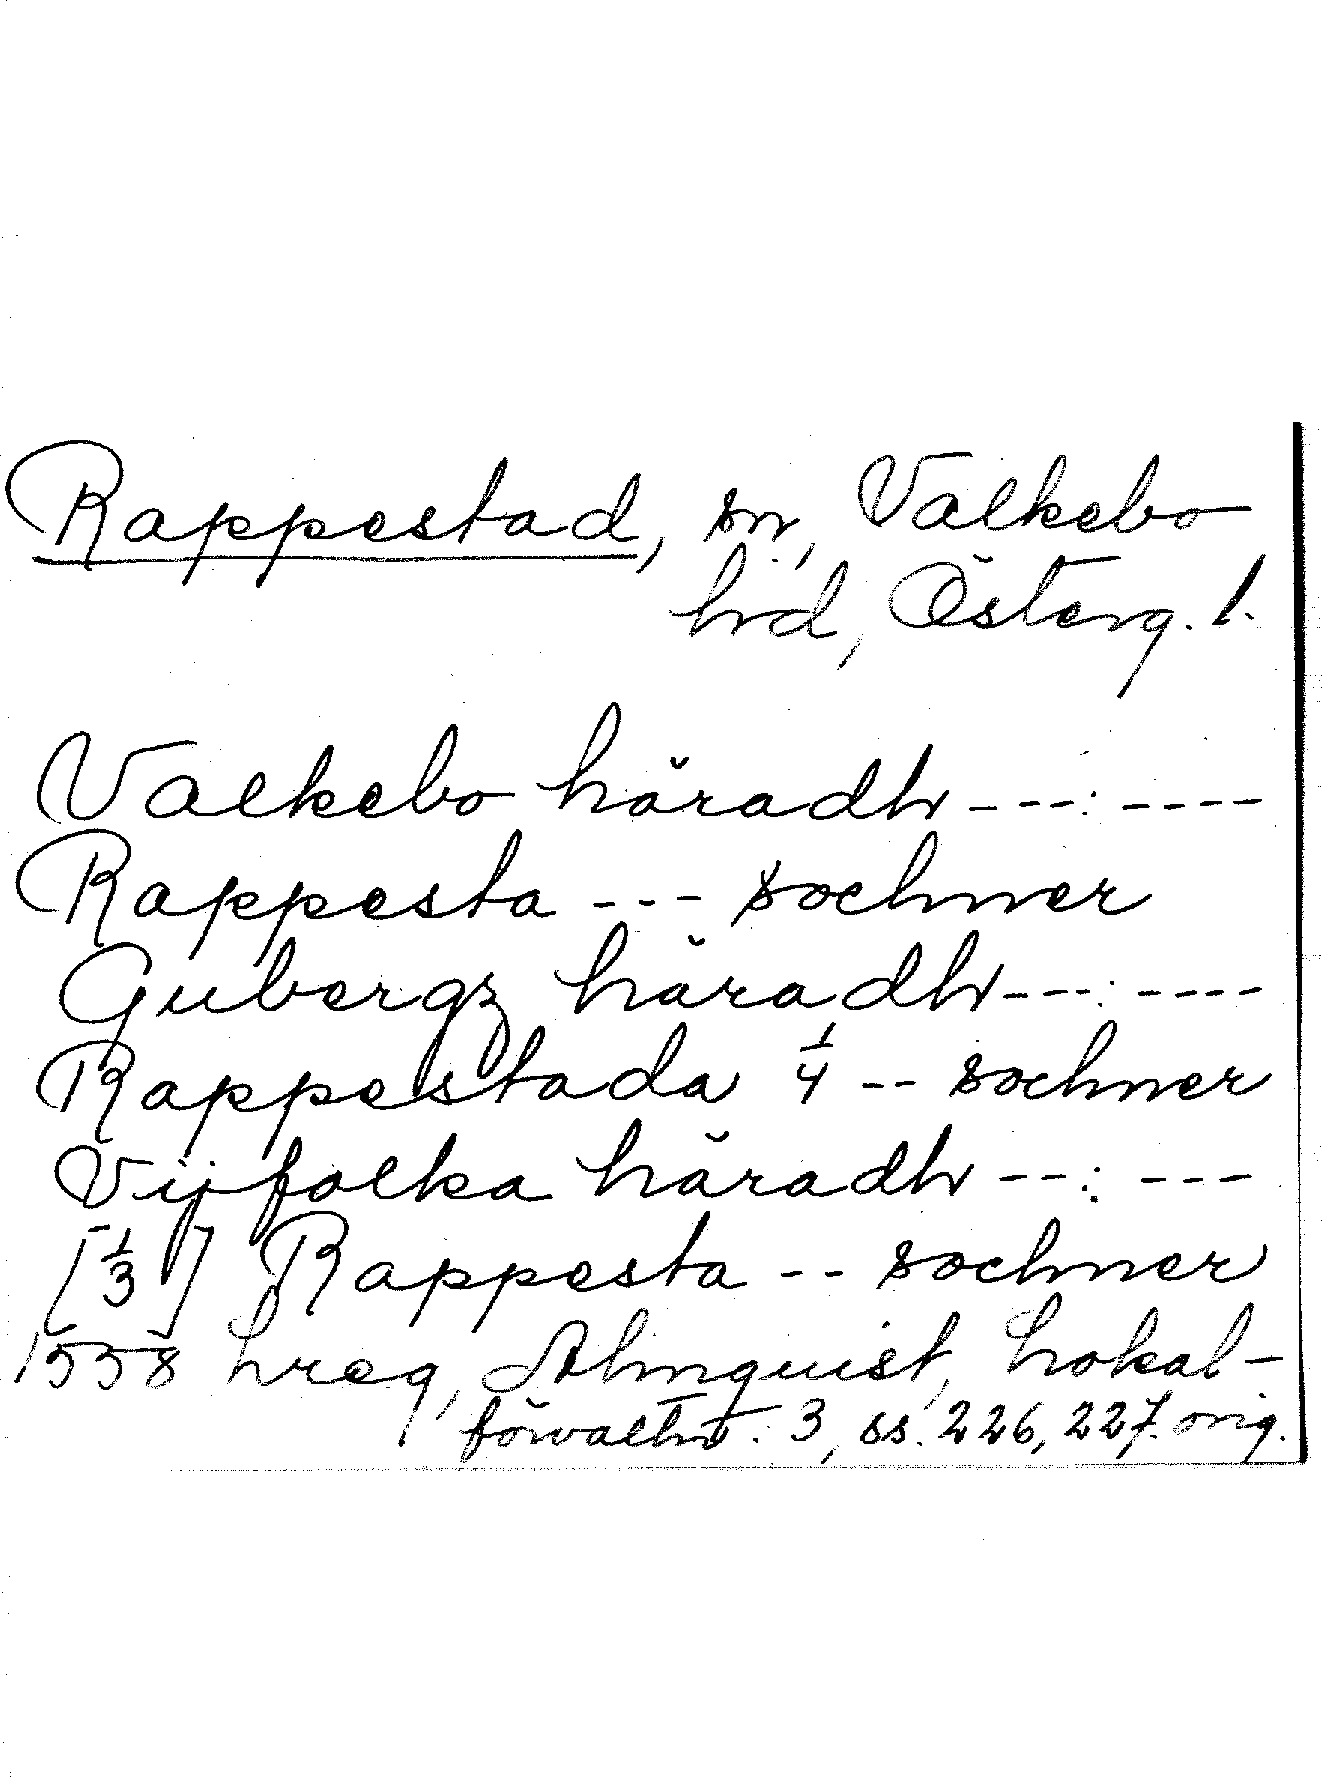 Rappestad, sn, Valkebo
hrd, Österg. l.
Valkebo häradh ---: ----
Rappesta --- sochner
Gubergz häradh ---: ----
Rappestada 1/4 -- sochner
Vijfolka häradh --: ---
[1/3] Rappesta -- sochner
1558 hreg, Almquist, Lokal-
förvaltn. 3, ss. 226, 227. orig.